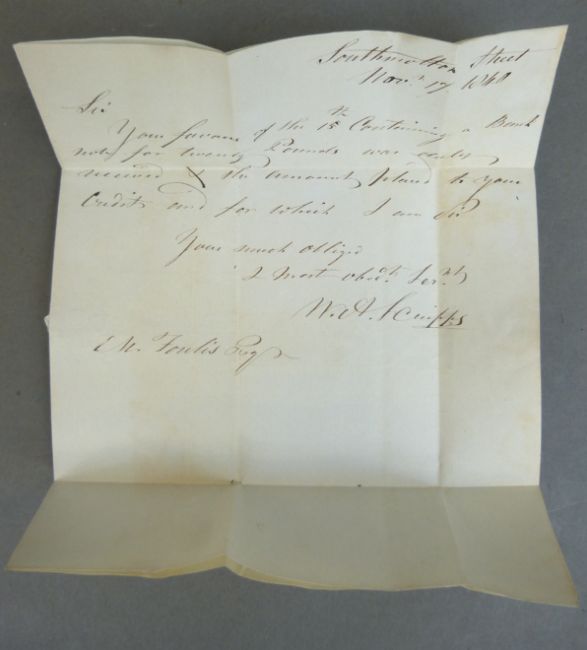 Southmolton Street
Nov.r 17 1840
Sir
Your favour of the 15th Containing a Bank
note for twenty Pounds was duly
received & the amount placed to your
Credit and for which I am Sir
Your much obliged
& Most obed.t Ser.vt
W. A. Scripps
M. Foulis Esq